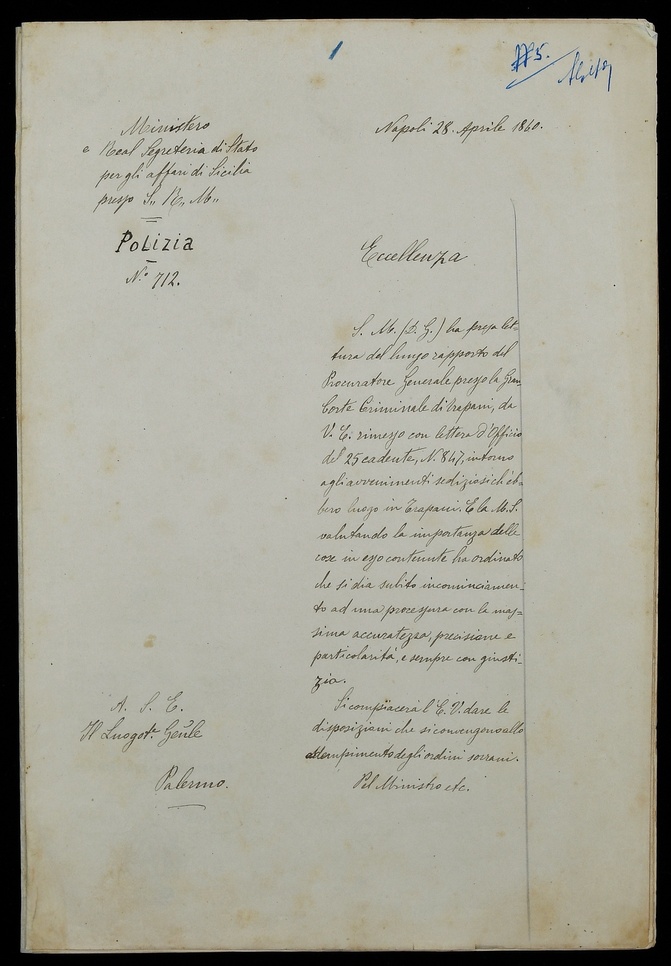 115.
Ministero
e Real Segreteria di Stato
per gli affari di Sicilia
presso S. R. M.
Polizia
N.º 712.
Napoli 28 Aprile 1860.
Eccellenza
S. M. (D. G.) ha preso let-
tura del lungo rapporto del
Procuratore Generale presso la Gran
Corte Criminale di Trapani, da
V. E. rimesso con lettera d'Officio
del 25 cadente, N. 847, intorno
agli avvenimenti sediziosi ch'eb-
bero luogo in Trapani. E la M. S.
valutando la importanza delle
cose in esso contenute ha ordinato
che si dia subito incominciamen-
to ad una processura con la mas-
sima accuratezza, precisione e
particolarità, e sempre con giusti-
zia.
Si compiacerà l'E. V. dare le
disposizioni che si convengono allo
adempimento degli ordini sovrani.
Pel Ministro etc.
A. S. E.
Il Luogote. Gēnle
Palermo.